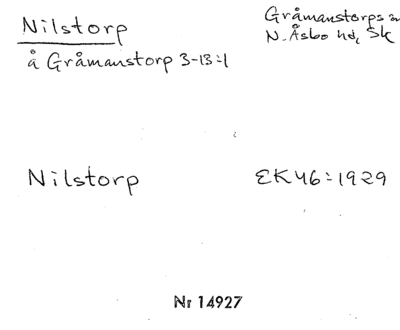 Nilstorp
Gråmanstorps
N. Åsbo hd, Sk
å Gråmanstorp 3-13:1
Nilstorp
EK 46:1929
Nr 14927